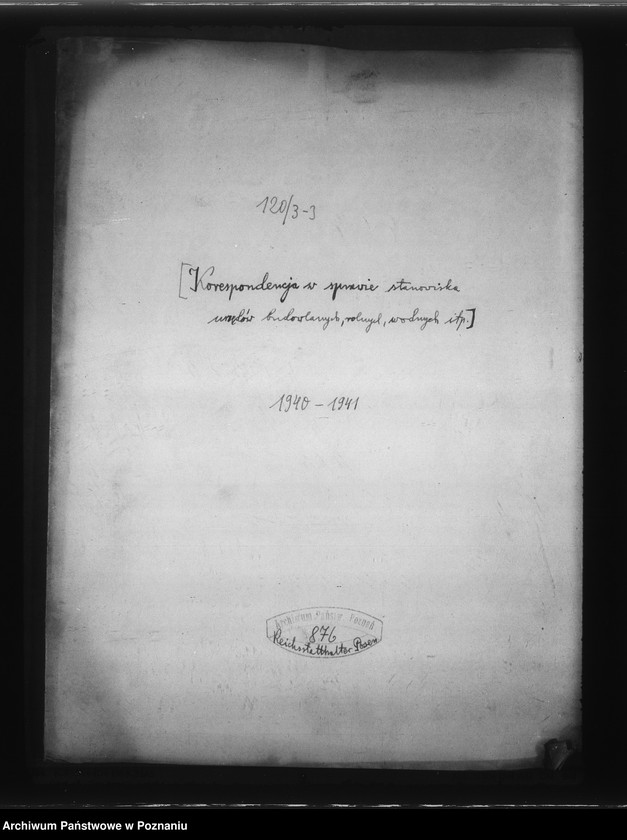 120/3-3
[Korespondencja w sprawie stanowiska
urzędów budowlanych, rolnych, wodnych itp.]
1940 - 1941
Archiwum Państw. Poznań
876
Reichsstatthalter Posen
Archiwum Państwowe w Poznaniu